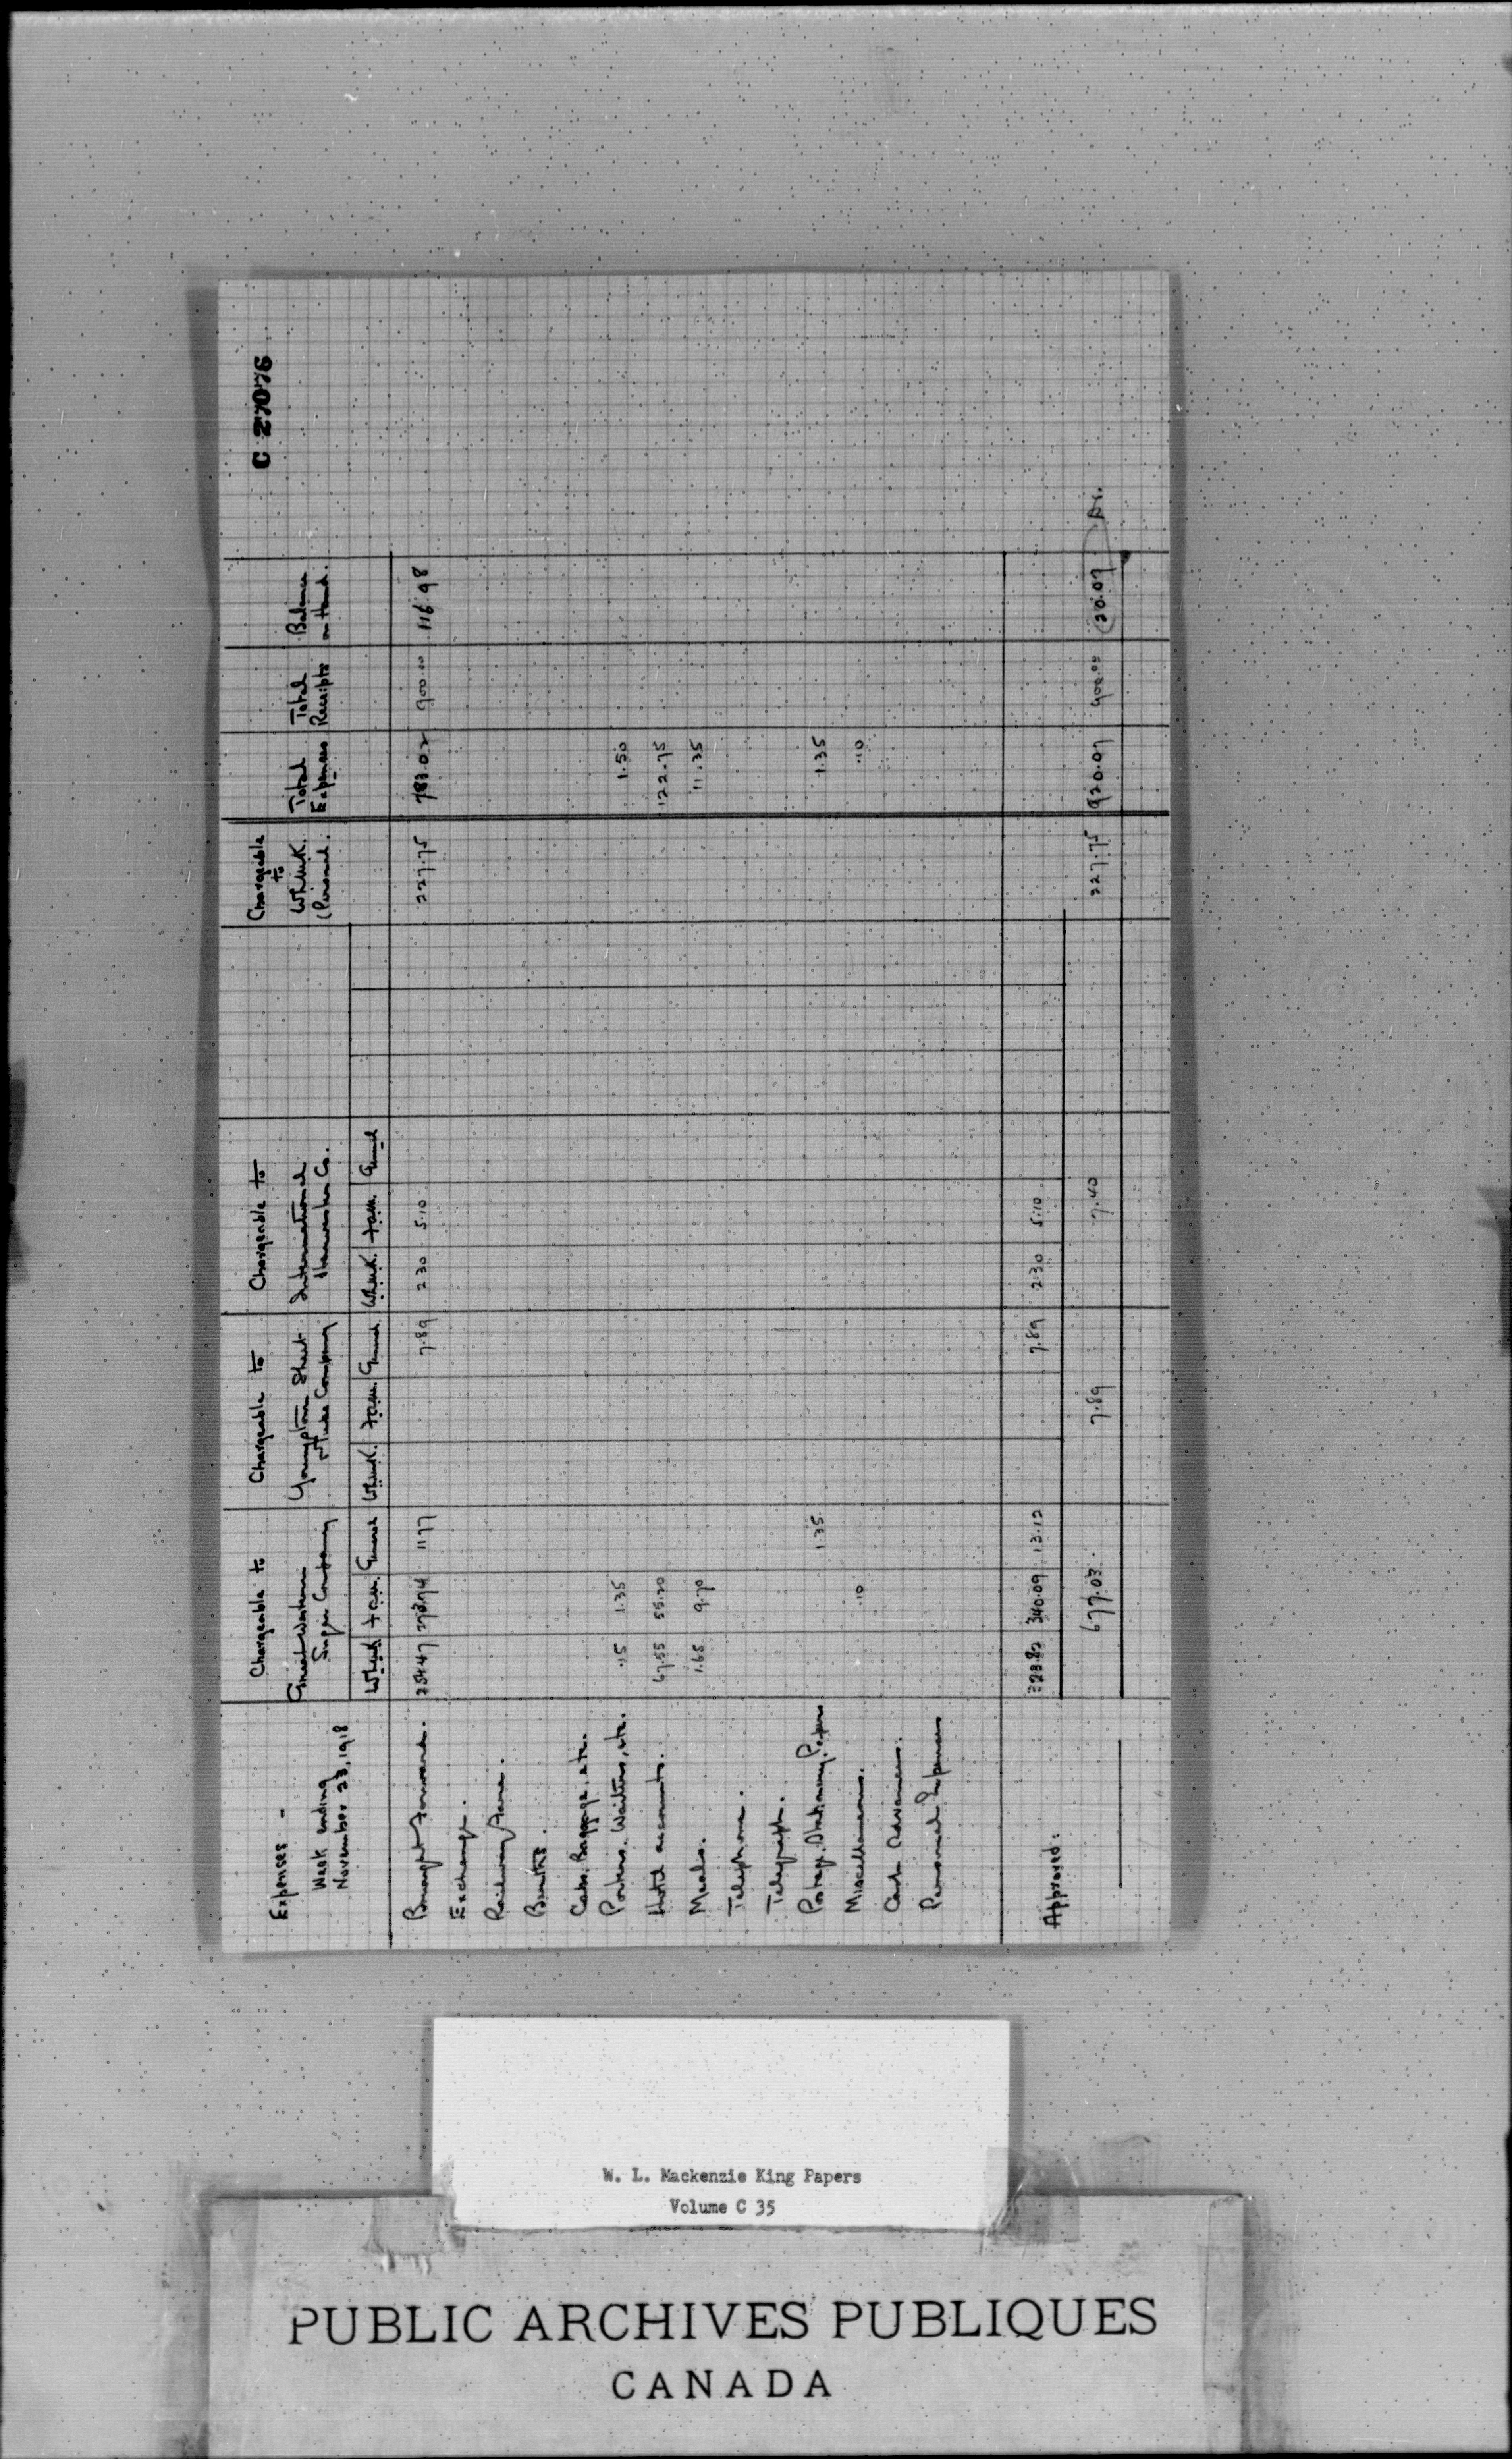 C 27076
Expenses -
Week ending
November 23, 1918
Chargeable to
Great Western
Sugar Company
Chargeable to
Youngstown Sheet
& Tube Company
Chargeable to
International
Harvester Co.
Chargeable
to
W.L.M.K.
(Personal.
Total
Expenses
Total
Receipts
Balance
on Hand.
W.L.M.K. F.A.M. General W.L.M.K. F.A.M. General W.L.M.K. F.A.M. General
Brought Forward. 254.47 273.74 11.77 7.89 2.30 5.10 227.75 783.02 900.00 116.98
Exchange.
Railway Fare.
Berths.
Cabs, Baggage, etc.
Porters, Waiters, etc. .15 1.35 1.50
Hotel accounts. 67.55 55.20 122.75
Meals. 1.65 9.70 11.35
Telephone.
Telegraph.
Postage, Stationery, Papers 1.35 1.35
Miscellaneous. .10 .10
Cash Advances.
Personal Expenses
Approved: 323.82 340.09 13.12 7.89 2.30 5.10
677.03 7.89 7.40 227.75 920.07 900.00 (20.07) Dr.
W. L. Mackenzie King Papers
Volume C 35
PUBLIC ARCHIVES PUBLIQUES
CANADA